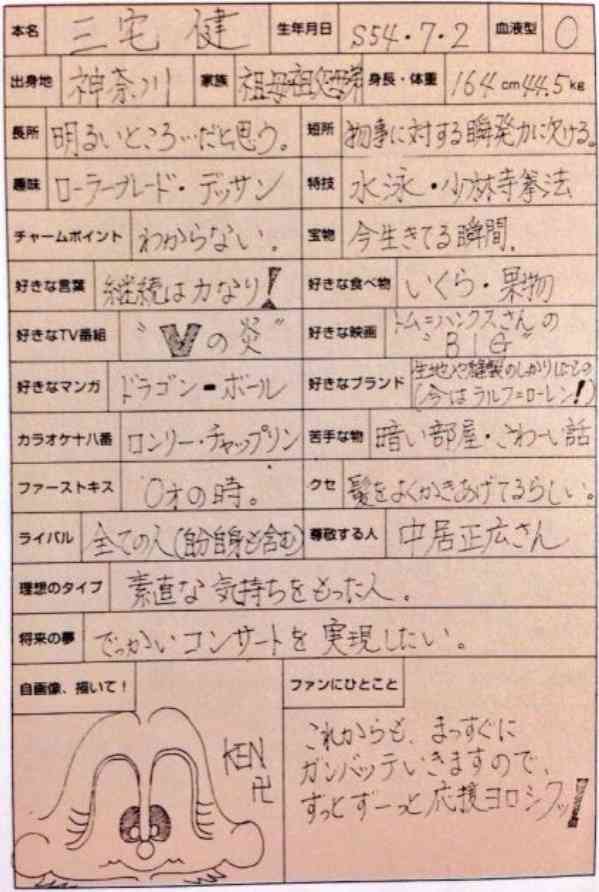 本名 三宅 健 生年月日 S54・7・2 血液型 O
出身地 神奈川 家族 祖母祖父 身長・体重 164cm 44.5kg
長所 明るいところ…だと思う。 短所 物事に対する瞬発力に欠ける。
趣味 ローラーブレード・デッサン 特技 水泳・少林寺拳法
チャームポイント わからない。 宝物 今生きてる瞬間。
好きな言葉 継続は力なり! 好きな食べ物 いくら・果物
好きなTV番組 "Vの炎" 好きな映画 トム=ハンクスさんの
"BIG"
好きなマンガ ドラゴン・ボール 好きなブランド 生地や縫製のしっかりしたもの
(今はラルフ=ローレン!)
カラオケ十八番 ロンリー・チャップリン 苦手な物 暗い部屋・こわーい話
ファーストキス 0才の時。 クセ 髪をよくかきあげてるらしい。
ライバル 全ての人(自分自身も含む) 尊敬する人 中居正広さん
理想のタイプ 素直な気持ちをもった人。
将来の夢 でっかいコンサートを実現したい。
自画像、描いて!
KEN
卍
ファンにひとこと
これからも、まっすぐに
ガンバッテいきますので、
ずっとずーっと応援ヨロシクッ!